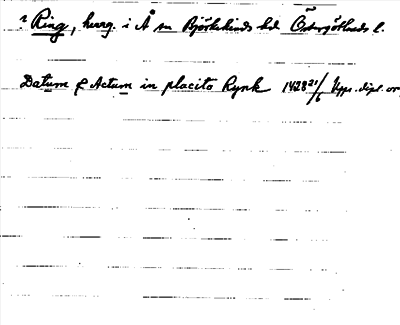 ? Ring, herrg. i Å sn Björkekinds hd Östergötlands l.
Datum & Actum in placito Rynk 1428 21/6 Upps. dipl. or,